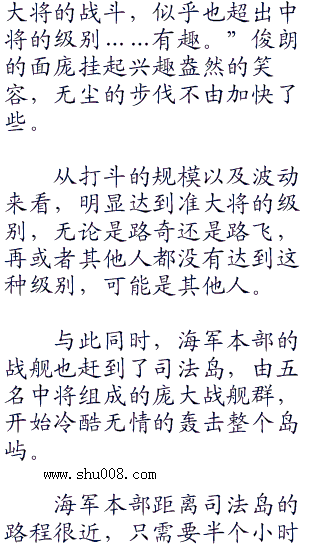 大将的战斗，似乎也超出中
将的级别……有趣。”俊朗
的面庞挂起兴趣盎然的笑
容，无尘的步伐不由加快了
些。
从打斗的规模以及波动
来看，明显达到准大将的级
别，无论是路奇还是路飞，
再或者其他人都没有达到这
种级别，可能是其他人。
与此同时，海军本部的
战舰也赶到了司法岛，由五
名中将组成的庞大战舰群，
开始冷酷无情的轰击整个岛
屿。
www.shu008.com
海军本部距离司法岛的
路程很近，只需要半个小时